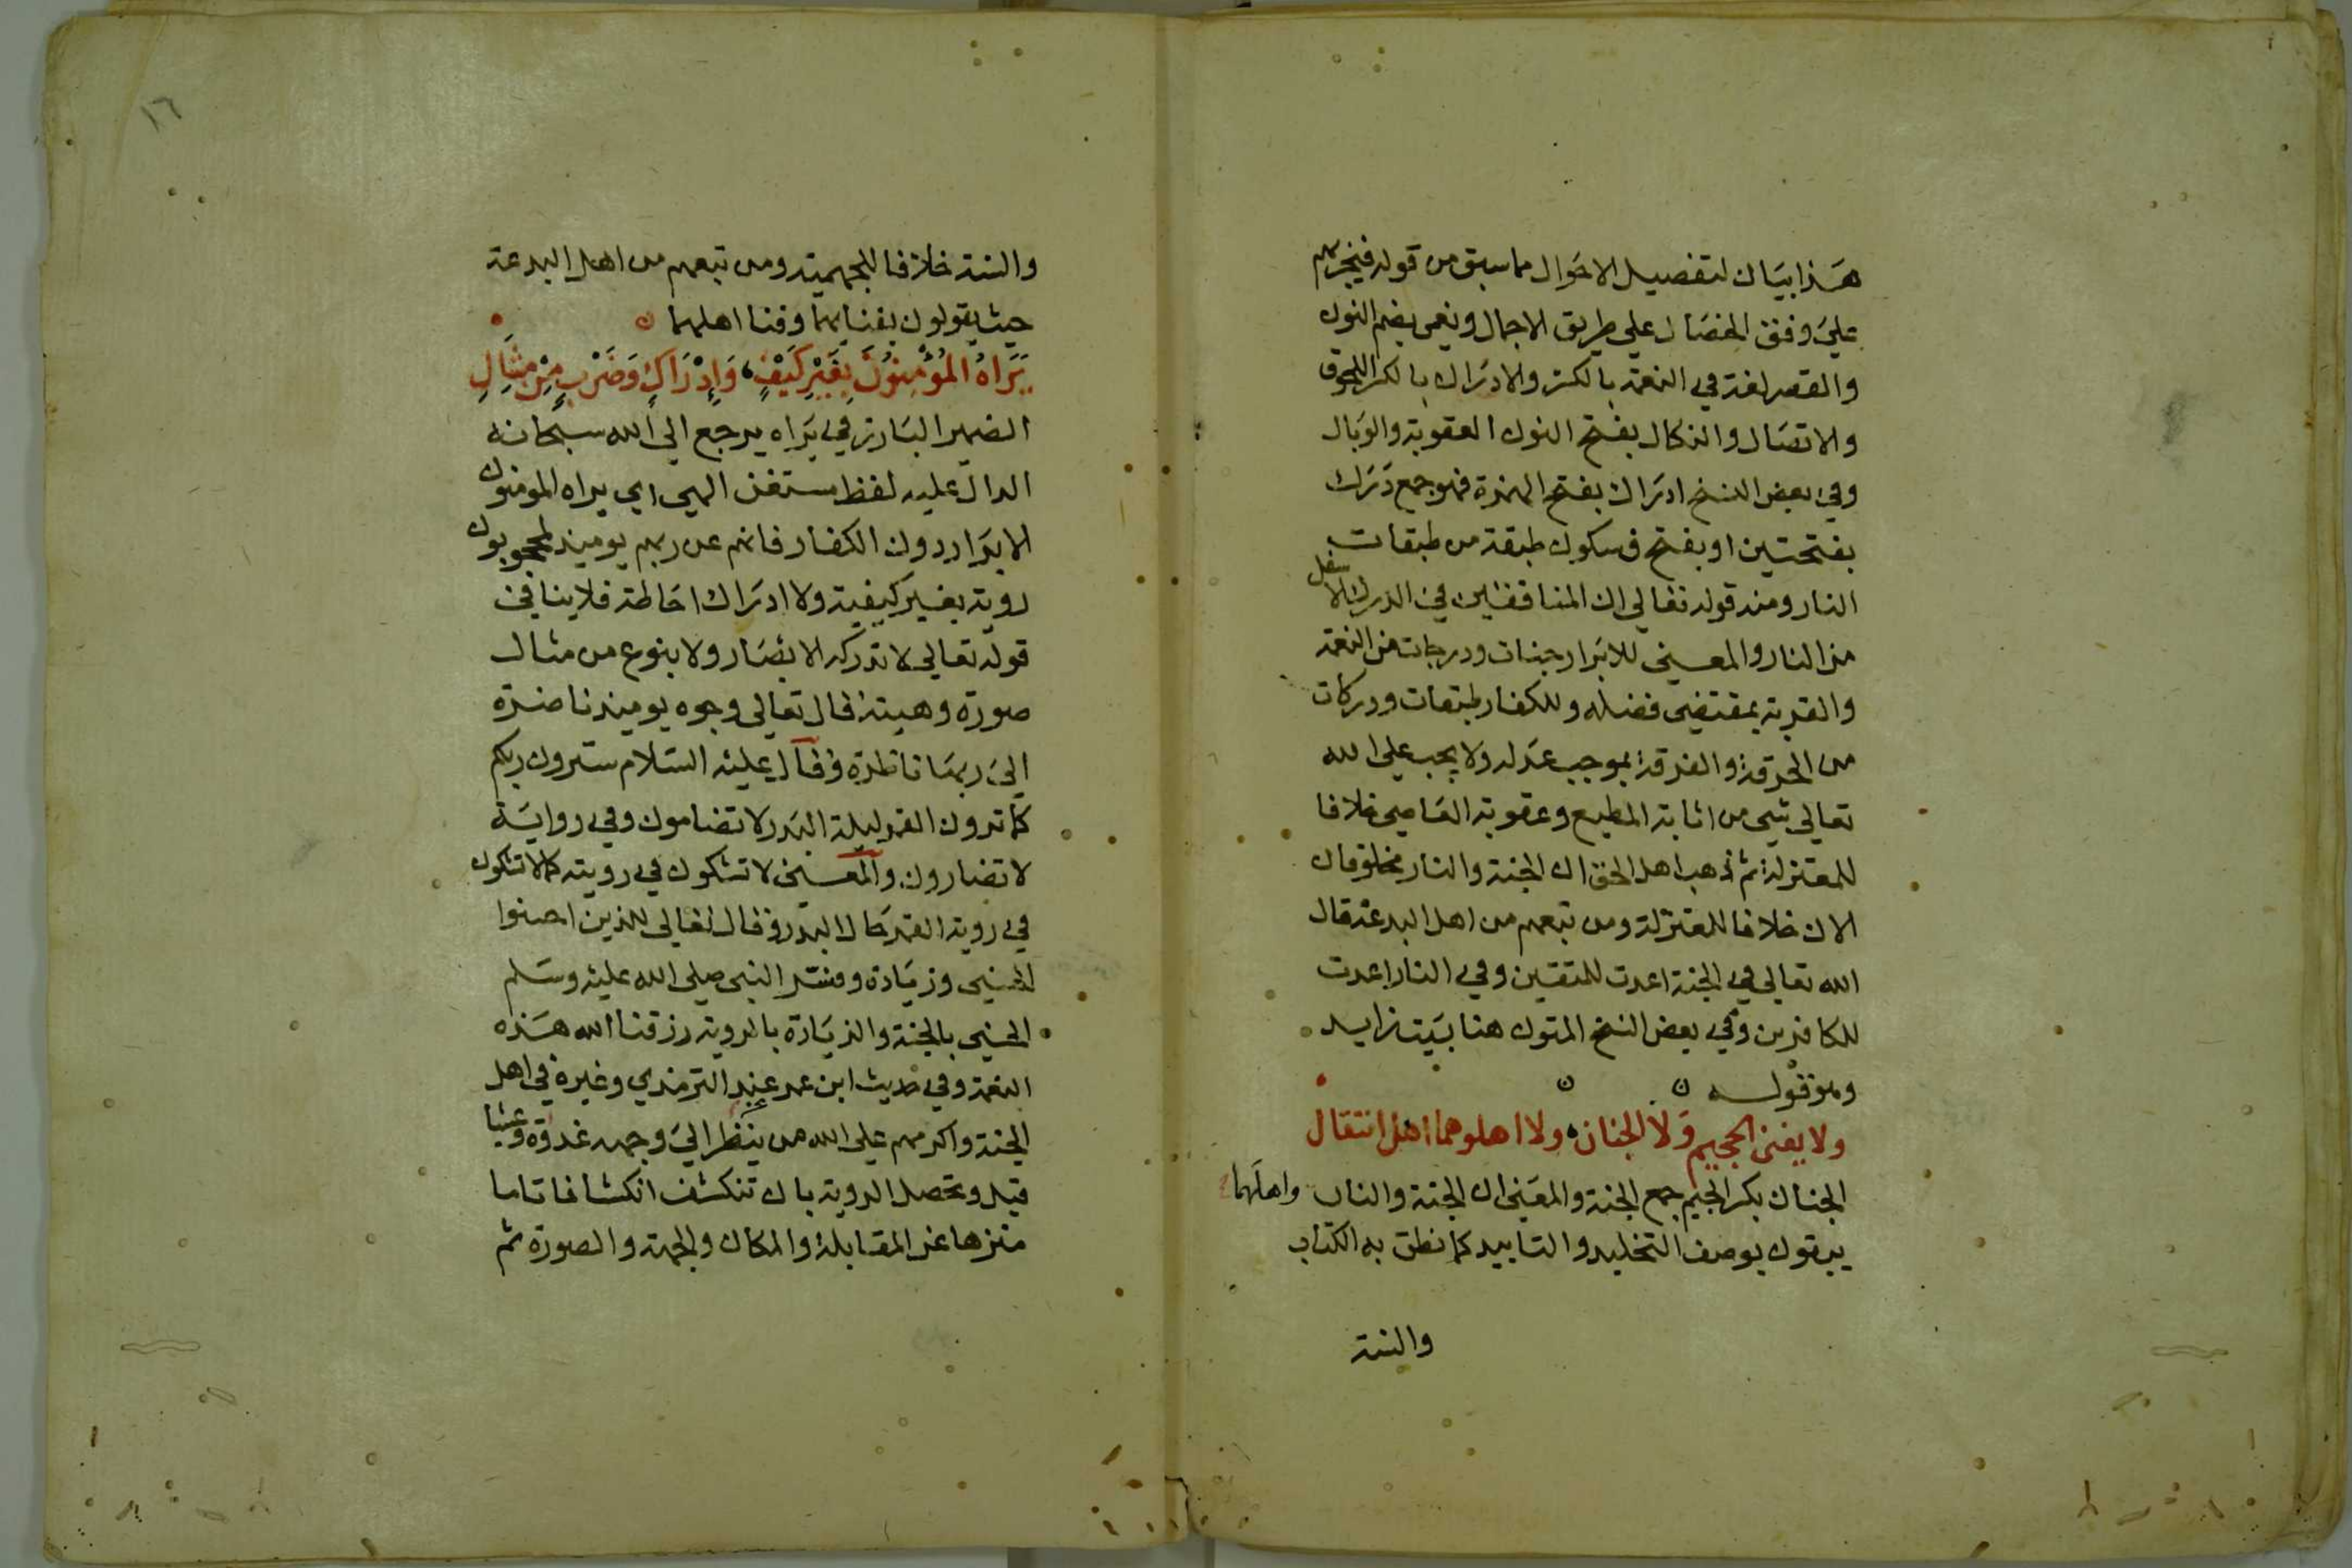 هذا بيان لتفصيل الاحوال مما سبق من قوله فيجزيهم
علي وفق الخصال علي طريق الاجمال ونعمي بضم النون
والقصر لغة في النعمة بالكسر والادراك بالكسر اللحوق
والاتصال والنكال بفتح النون العقوبة والوبال
وفي بعض النسخ ادراك بفتح الهمزة فهو جمع درك
بفتحتين او بفتح فسكون طبقة من طبقات
النار ومنه قوله تعالي ان المنافقين في الدرك الاسفل
من النار والمعني للابرار جنات ودرجات من النعمة
والقربة بمقتضي فضله وللكفار طبقات ودركات
من الحرقة والفرقة بموجب عدله ولا يجب علي الله
تعالي شي من اثابة المطيع وعقوبة العاصي خلافا
للمعتزلة ثم ذهب اهل الحق ان الجنة والنار مخلوقان
الان خلافا للمعتزلة ومن تبعهم من اهل البدعة قال
الله تعالي في الجنة اعدت للمتقين وفي النار اعدت
للكافرين وفي بعض النسخ المتون هنا بيت زايد
وهو قوله
ولا يفني الجحيم ولا الجنان ولا اهلوهما اهل انتقال
الجنان بكسر الجيم جمع الجنة والمعني ان الجنة والنار واهلهما
يبقون بوصف التخليد والتابيد كما نطق به الكتاب
والسنة
١٦
والسنة خلافا للجهمية ومن تبعهم من اهل البدعة
حيث يقولون بفنايهما وفنا اهلهما
يَرَاهُ المُؤْمِنُونَ بِغَيْرِ كَيْفٍ وَإِدْرَاكٍ وَضَرْبٍ مِنْ مِثَالِ
الضمير البارز في يراه يرجع الي الله سبحانه
الدال عليه لفظ مستغن الهي اي يراه المومنون
الابرار دون الكفار فانهم عن ربهم يوميذ لمحجوبون
روية بغير كيفية ولا ادراك احاطة فلا ينافي
قوله تعالي لا تدركه الابصار ولا بنوع من مثال
صورة وهيئة قال تعالي وجوه يوميذ ناضرة
الي ربها ناظرة وقال عليه السلام سترون ربكم
كما ترون القمر ليلة البدر لا تضامون وفي رواية
لا تضارون والمعني لا تشكون في رويته كما لا تشكون
في روية القمر حال البدر وقال تعالي للذين احسنوا
الحسني وزيادة وفسر النبي صلي الله عليه وسلم
الحسني بالجنة والزيادة بالروية رزقنا الله هذه
النعمة وفي حديث ابن عمر عند الترمذي وغيره في اهل
الجنة واكرمهم علي الله من ينظر الي وجهه غدوة وعشيا
قيل وتحصل الروية بان تنكشف انكشافا تاما
منزها عن المقابلة والمكان والجهة والصورة ثم